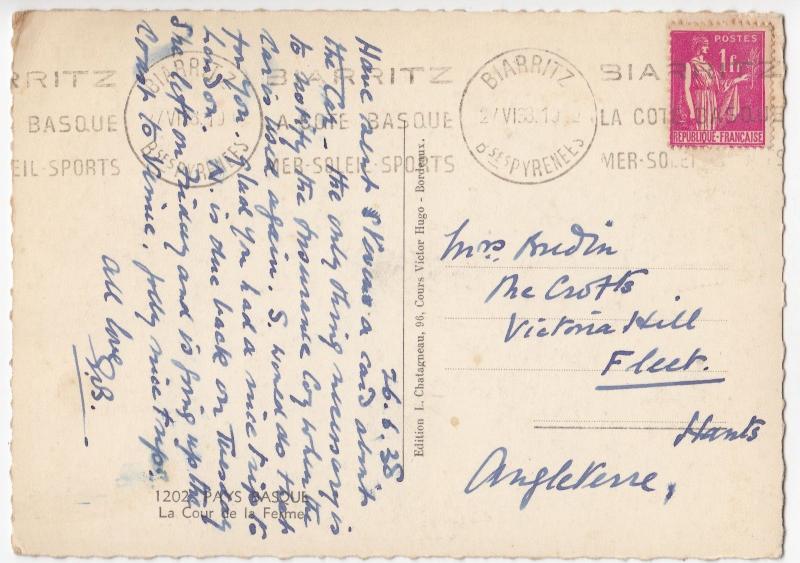 BIARRITZ
BASQUE
EIL-SPORTS
BIARRITZ
27 VI 38
Bses PYRENEES
BIARRITZ
LA COTE BASQUE
MER-SOLEIL-SPORTS
BIARRITZ
27 VI 38. 19
Bses PYRENEES
BIARRITZ
LA COTE BASQUE
MER-SOLEIL
POSTES
1fr
REPUBLIQUE-FRANÇAISE
26.6.38
Have sent a card about
the Car - the only thing necessary is
to notify the Insurance Coy when the
car is used again. S. would do that
for you. Glad you had a nice trip to
London. is due back on Tuesday
She left on Friday and is going up the
Coast to Venice. Jolly nice trips.
all love
Edition L. Chatagneau, 96, Cours Victor Hugo - Bordeaux.
Mrs Bredin
The Crofts
Victoria Hill
Fleet.
Hants
Angleterre,
1202 PAYS BASQUE
La Cour de la Ferme